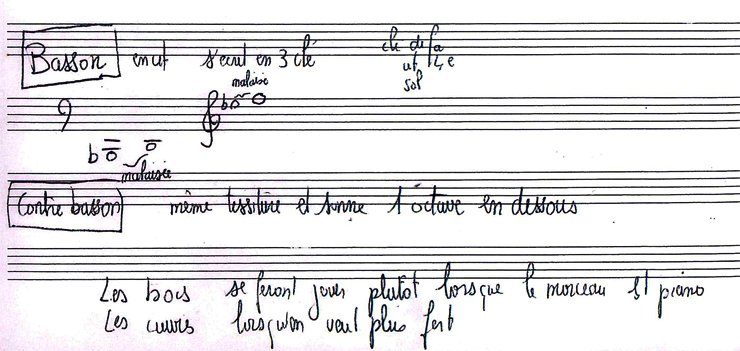 Basson en ut s'écrit en 3 clé clé de fa
ut 4e
sol
malaisé
malaisée
Contre basson même tessiture et sonne 1 octave en dessous
Les bois se feront jouer plutôt lorsque le morceau est piano
Les cuivres lorsqu'on veut plus fort